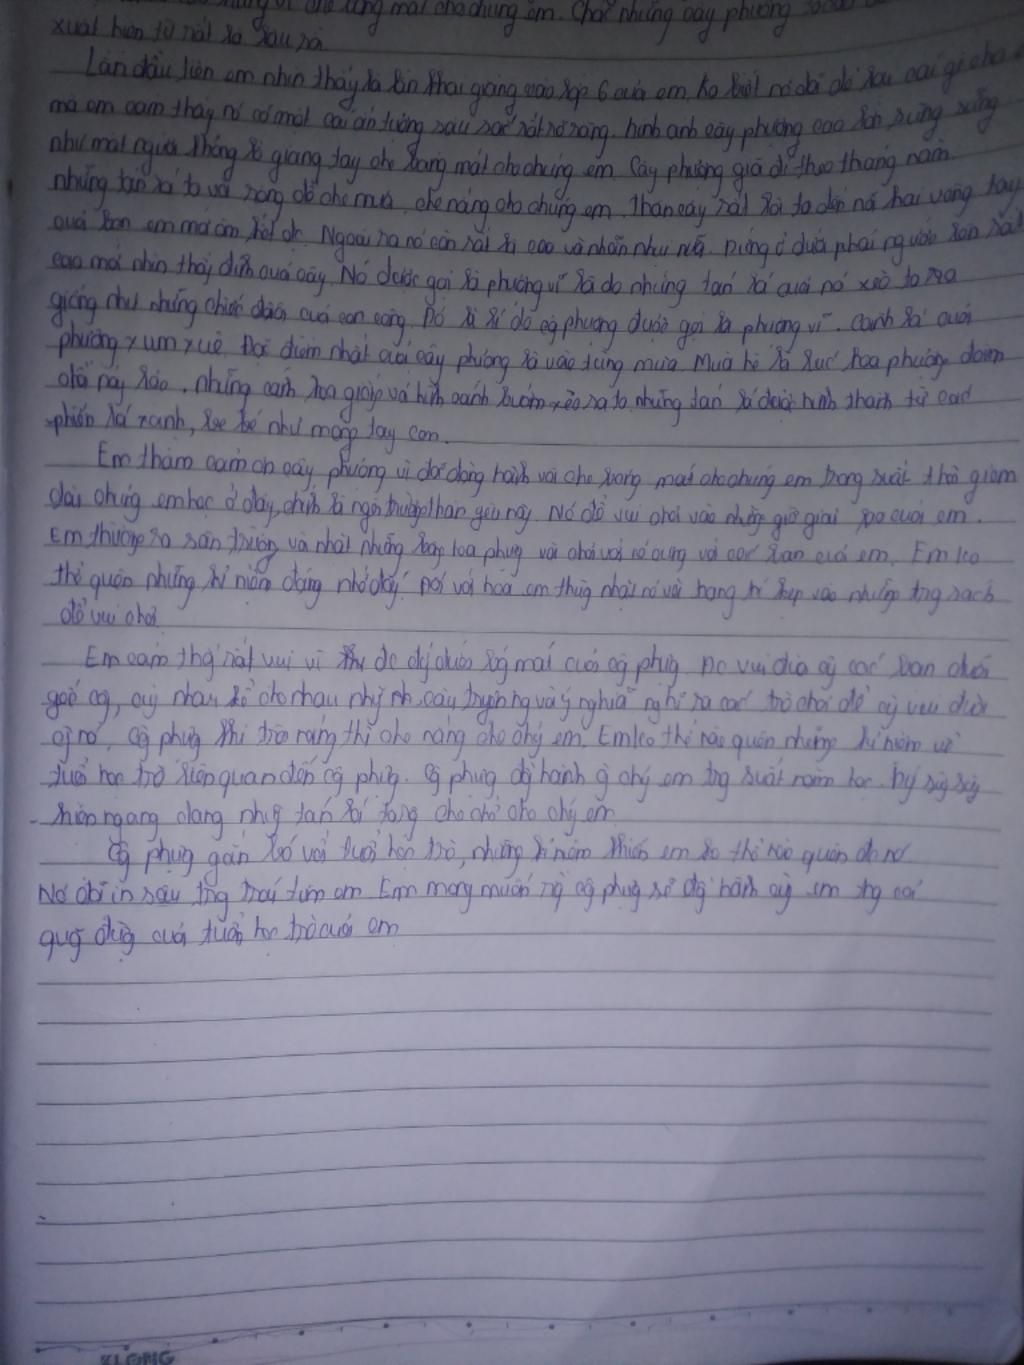 che bóng mát cho chúng em. Chắc những cây phượng
xuất hiện từ rất là lâu rồi.
Lần đầu tiên em nhìn thấy là lần khai giảng vào lớp 6 của em. Ko biết nó đã để lâu cái gì cho
mà em cảm thấy nó có một cái ấn tượng sâu sắc rất rõ ràng. hình ảnh cây phượng cao lớn, sừng sững
như một người khổng lồ giang tay che bóng mát cho chúng em. Cây phượng già đi theo tháng năm.
những tán lá to và rộng để che mưa, che nắng cho chúng em. Thân cây rất là to đến nỗi hai vòng tay
của bọn em mới ôm hết đc. Ngoài ra nó còn rất là cao và nhẵn như nữa. Đứng ở dưới phải ngước lên rất
cao mới nhìn thấy đỉnh của cây. Nó được gọi là phượng vĩ là do những tán lá của nó xòe to ra
giống như những chiếc đuôi của con công. Đó là lí do cây phượng được gọi là phượng vĩ. cành lá của
phượng xum xuê. Đặc điểm nhất của cây phượng là vào từng mùa. Mùa hè là lúc hoa phượng đơm
đỏ nảy lộc. những cánh hoa giống với hình cánh bướm xòe ra to. những tán lá được hình thành từ các
phiến lá xanh, be bé như móng tay con.
Em thầm cảm ơn cây phượng vì đã đồng hành và che bóng mát cho chúng em trong suốt thời gian
dài chúng em học ở đây, chính là ngôi trường thân yêu này. Nó để vui chơi vào những giờ giải lao của em.
Em thường ra sân trường và nhặt những bông hoa phượng và chơi với nó cùng với các bạn của em. Em ko
thể quên những kỉ niệm đáng nhớ đấy. Đối với hoa em thường nhặt nó về trang trí kẹp vào những trang sách
để vui chơi.
Em cảm thấy rất vui vì đc dưới bóng mát của cây phượng. Đc vui đùa cùng các bạn dưới
gốc cây, cùng nhau kể cho nhau những câu truyện hay và ý nghĩa nghĩ ra các trò chơi để cùng vui đùa
cùng nó. Cây phượng khi trời nắng thì che nắng cho chúng em. Em ko thể nào quên những kỉ niệm về
tuổi học trò liên quan đến cây phượng. Cây phượng đồng hành cùng chúng em trong suốt năm học. Nó sừng sững
hiên ngang dang những tán lá rộng che chở cho chúng em.
Cây phượng gắn bó với tuổi học trò, những kỉ niệm khiến em ko thể nào quên đc nó.
Nó đã in sâu trong trái tim em. Em mong muốn rằng cây phượng sẽ đồng hành cùng em trong cả
quãng đường của tuổi học trò của em.
KLONG